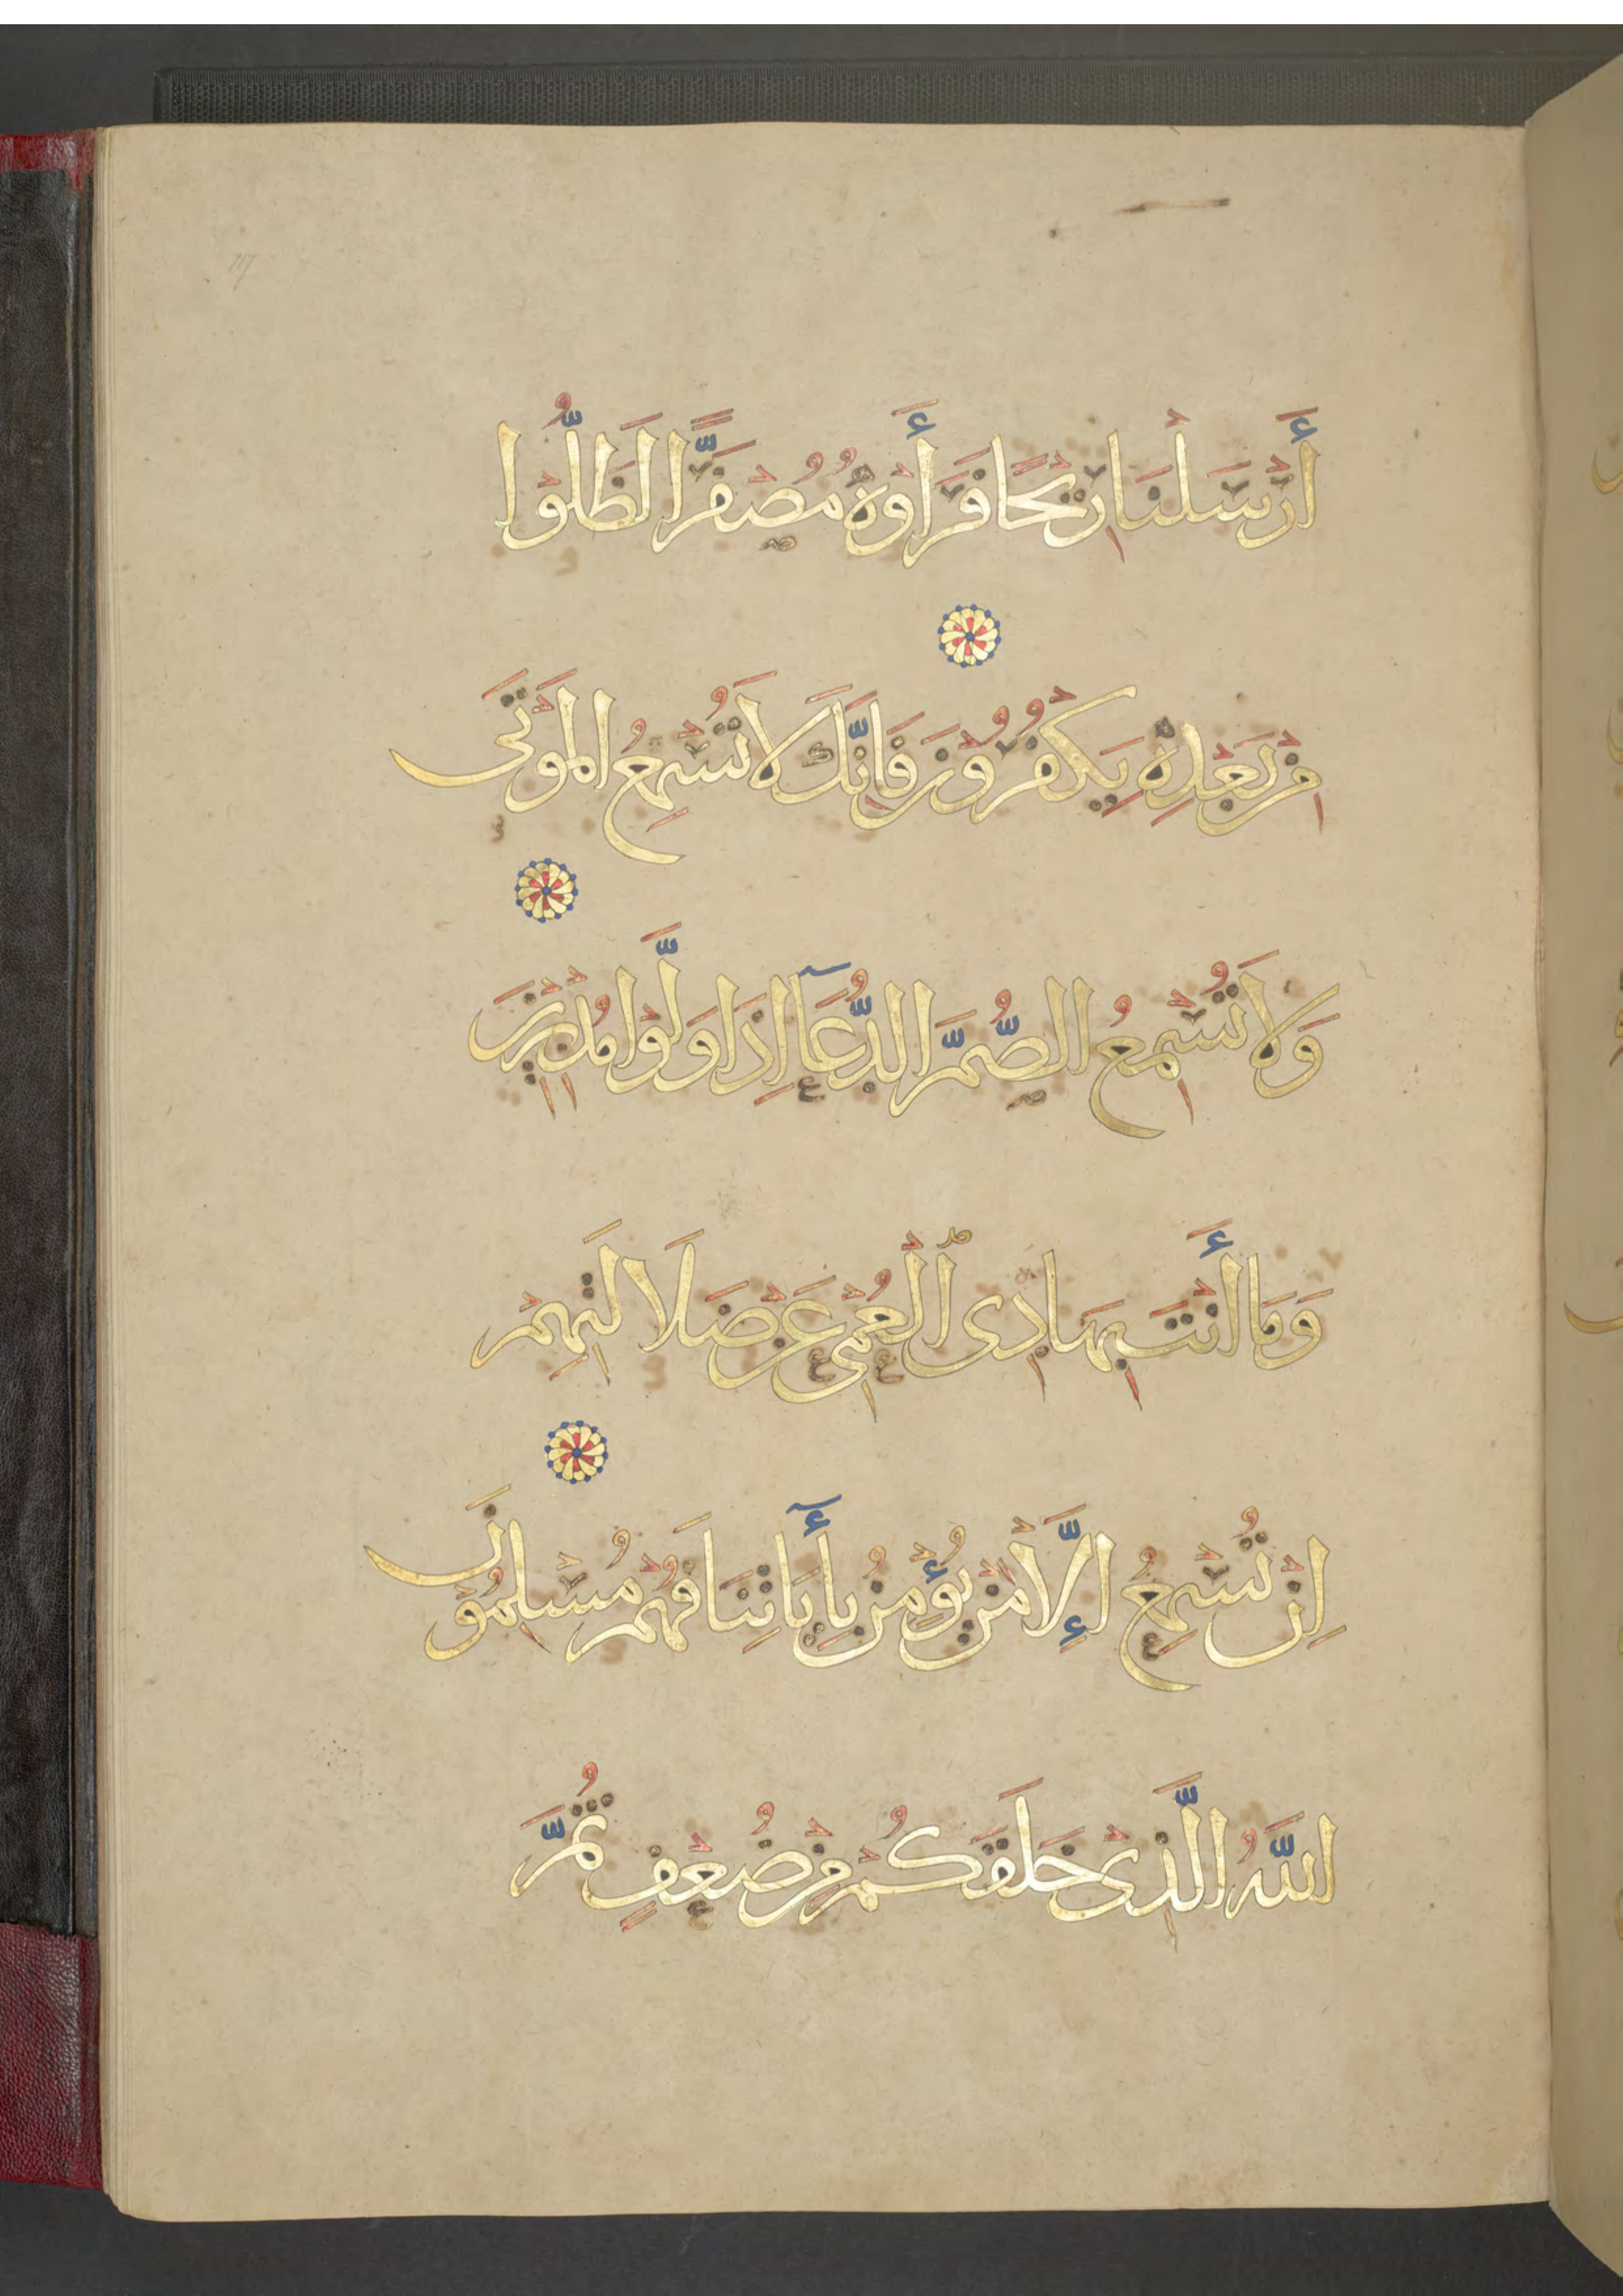 أَرْسَلْنَا رِيْحًا فَرَأَوْهُ مُصْفَرًّا لَظَلُّوْا
مِنْ بَعْدِهِ يَكْفُرُوْنَ فَاِنَّكَ لَا تُسْمِعُ الْمَوْتَى
وَلَا تُسْمِعُ الصُّمَّ الدُّعَآ اِذَا وَلَّوْا مُدْبِرِيْنَ
وَمَا أَنْتَ بِهَادِى ٱلْعُمْىِ عَنْ ضَلَالَتِهِمْ
اِنْ تُسْمِعُ إِلَّا مَنْ يُؤْمِنُ بِأٓيَاتِنَا فَهُمْ مُسْلِمُوْنَ
اللّٰهُ الَّذِىْ خَلَقَكُمْ مِنْ ضُعْفٍ ثُمَّ